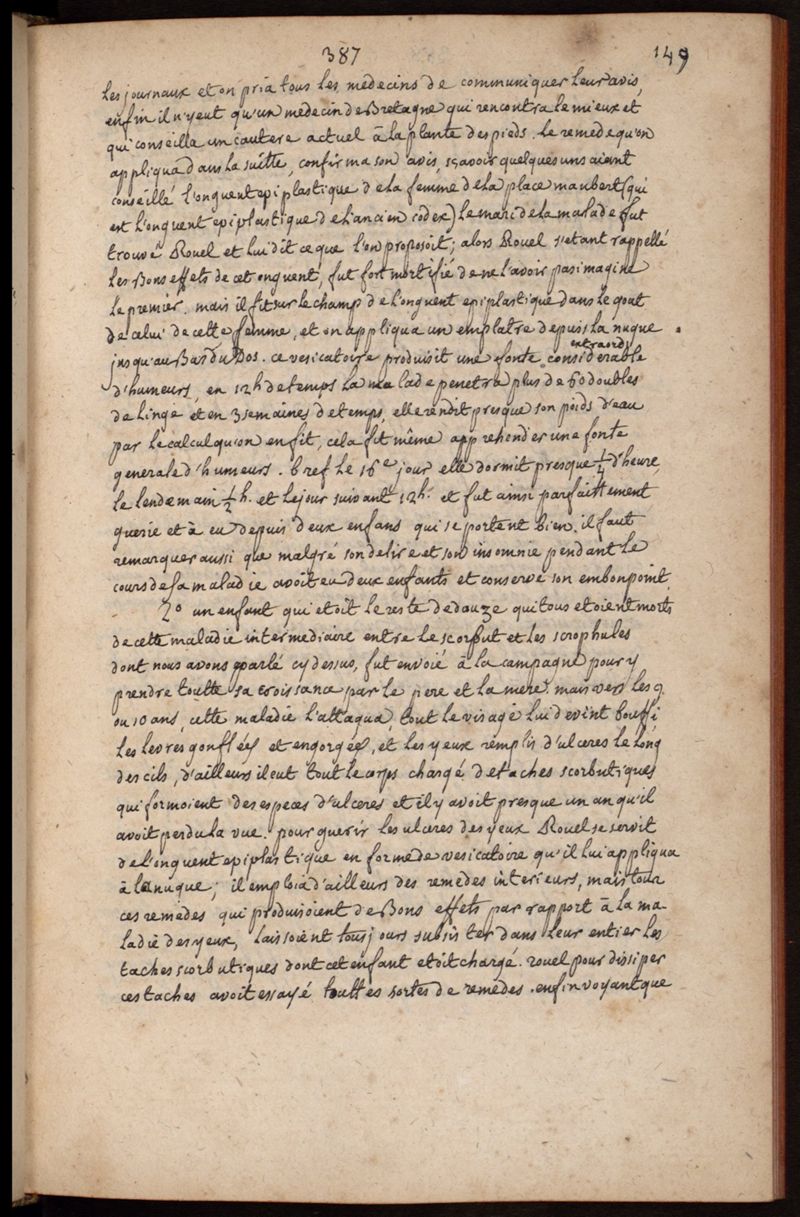 387
149
les journaux et on pria tous les medecins de communiquer leur avis,
enfin il n'y eut qu'un medecin de Bretagne qui rencontra le mieux et
qui conseilla un cautere actuel à la plante des pieds. le remede qu'on
appliqua dans la suitte, confirma son avis, sçavoir quelques uns aiant
conseillé l'onguent epiplastique de la femme de la place maubert (qui
est l'onguent epiplastique de l'ancien codex) le mari de la malade fut
trouvé Rouel et lui dit ce que l'on proposoit; alors Rouel s'etant rappellé
les Bons effets de cet onguent, fut fort mortifié de ne l'avoir pas imaginé
le premier. mais il fit sur le champ de l'onguent epiplastique dans le gout
de celui de cette femme, et on appliqua un emplatre depuis la nuque
jusqu'au Bas du Dos. ce vesicatoire produisit une fonte extraord considerable
d'humeurs, en 12h de temps la malade penetra plus de 60 doubles
de linge et en 3 semaines de temps, elle rendit presque son poids d'eau
par le calcul qu'on en fit, cela fit même apprehender une fonte
generale d'humeurs. bref le 16e jour elle dormit presque ¼ d'heure,
le lendemain ½ h. et le jour suivant 12h. et fut ainsi parfaittement
guerie et à eu depuis deux enfans qui se portent bien. il faut
remarquer aussi que malgré son delire et son insomnie pendant le
cours de sa maladie avoit eu deux enfants et conservé son embonpoint.
2º un enfant qui etoit le reste de douze qui tous etoient morts
de cette maladie intermediaire entre le scorbut et les scrophules
dont nous avons parlé cy dessus, fut envoié à la campagne pour y
prendre toutte sa croissance par le pere et la mere. mais vers les 9
ou 10 ans, cette maladie l'attaqua, tout le visage lui devint bouffi
les levres gonflées et engorgées, et les yeux remplis d'ulceres le long
des cils, d'ailleurs il eut tout le corps chargé de taches scorbutiques
qui formoient des especes d'ulceres et il y avoit presque un an qu'il
avoit perdu la vue. pour guerir les ulceres des yeux Rouel se servit
de l'onguent epiplastique en forme de vesicatoire qu'il lui appliqua
à la nuque; il emploia d'ailleurs des remedes interieurs, mais tous
ces remedes qui produisoient de Bons effets par rapport à la ma-
ladie des yeux, laissoient tousjours subsister dans leur entier les
taches scorbutiques dont cet enfant etoit chargé. rouel pour dissiper
ces taches avoit essayé touttes sortes de remedes. enfin voyant que